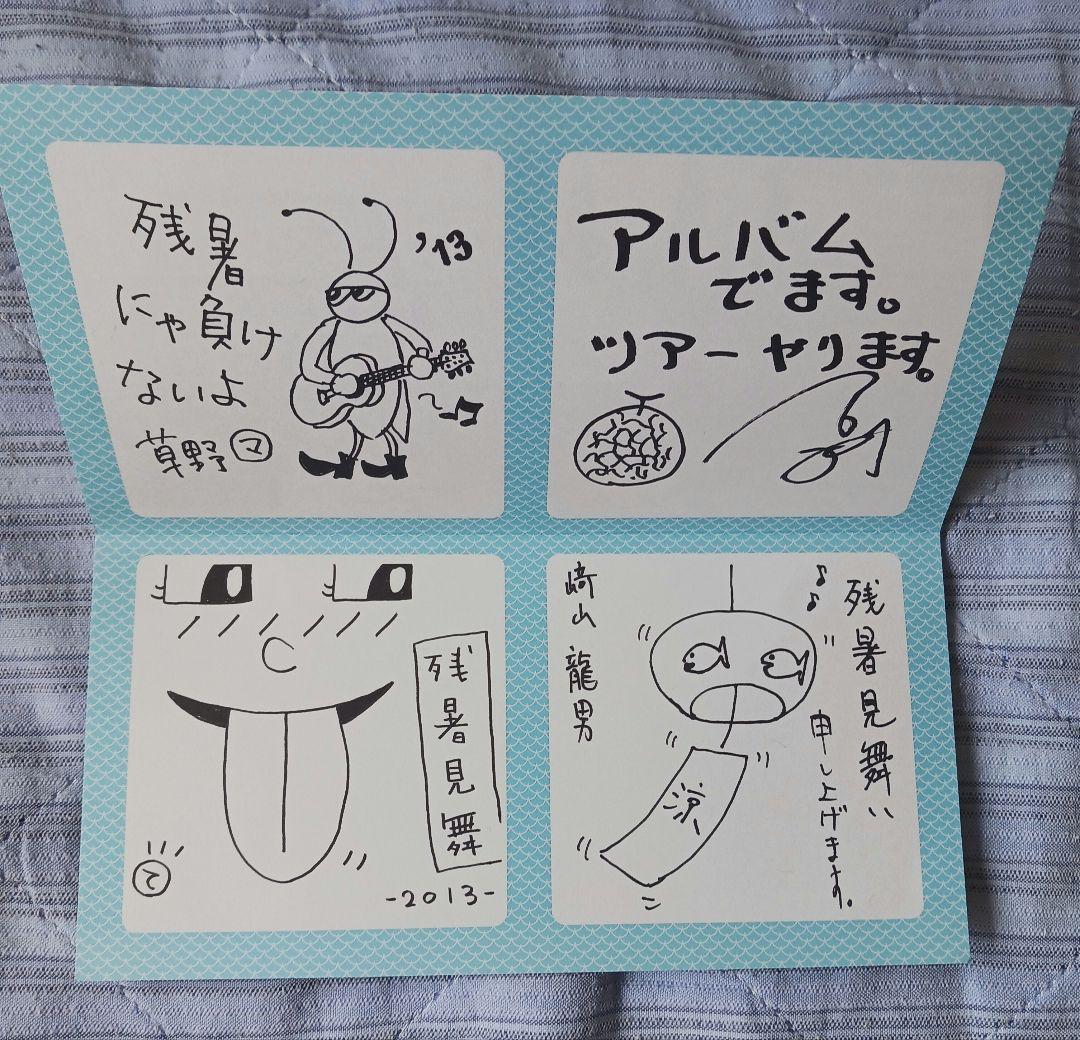 残暑
にゃ負け
ないよ
草野マ
'13
アルバム
でます。
ツアーやります。
残暑見舞
-2013-
て
残暑見舞い
申し上げます。
涼
崎山龍男